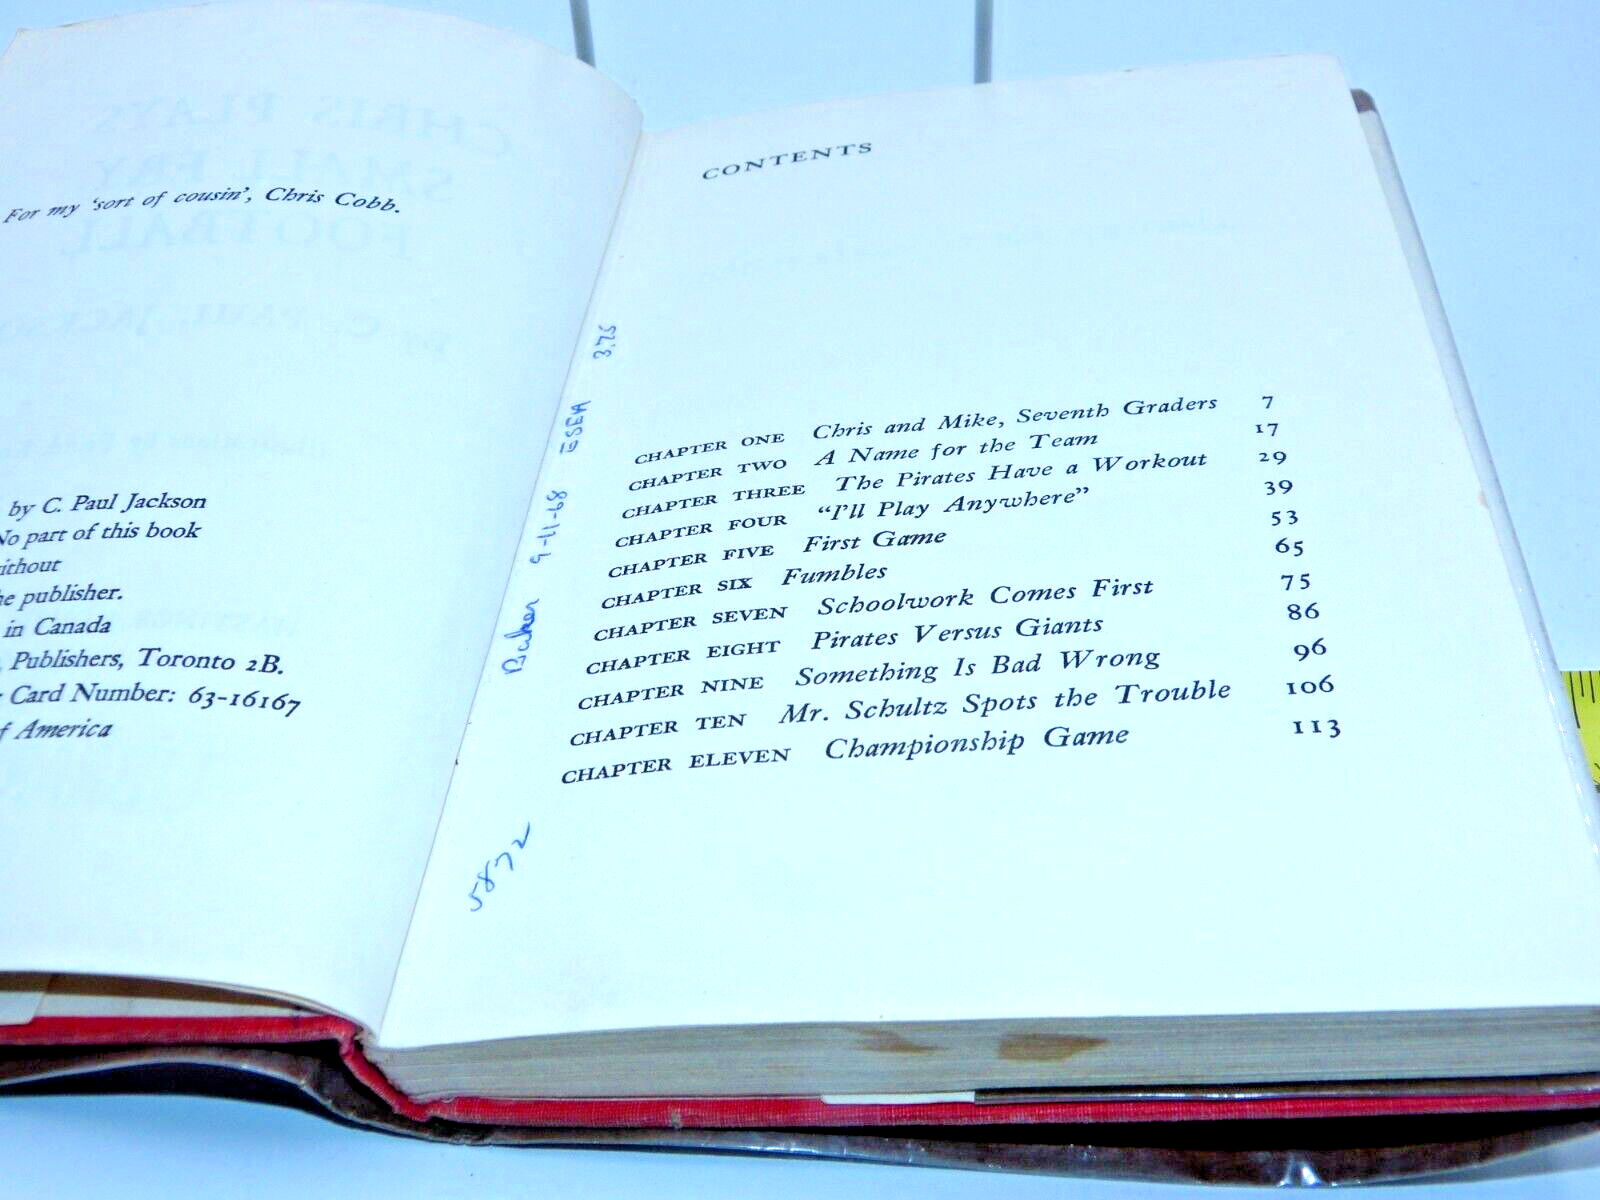 For my 'sort of cousin', Chris Cobb.
by C. Paul Jackson
No part of this book
without
he publisher.
in Canada
Publishers, Toronto 2B.
Card Number: 63-16167
f America
CHRIS PLAYS
SMALL FRY
FOOTBALL
by C. PAUL JACKSO
CONTENTS
CHAPTER ONE Chris and Mike, Seventh Graders 7
CHAPTER TWO A Name for the Team 17
CHAPTER THREE The Pirates Have a Workout 29
CHAPTER FOUR "I'll Play Anywhere" 39
CHAPTER FIVE First Game 53
CHAPTER SIX Fumbles 65
CHAPTER SEVEN Schoolwork Comes First 75
CHAPTER EIGHT Pirates Versus Giants 86
CHAPTER NINE Something Is Bad Wrong 96
CHAPTER TEN Mr. Schultz Spots the Trouble 106
CHAPTER ELEVEN Championship Game 113
Baker 9-11-68 ESEA 3.75
5872